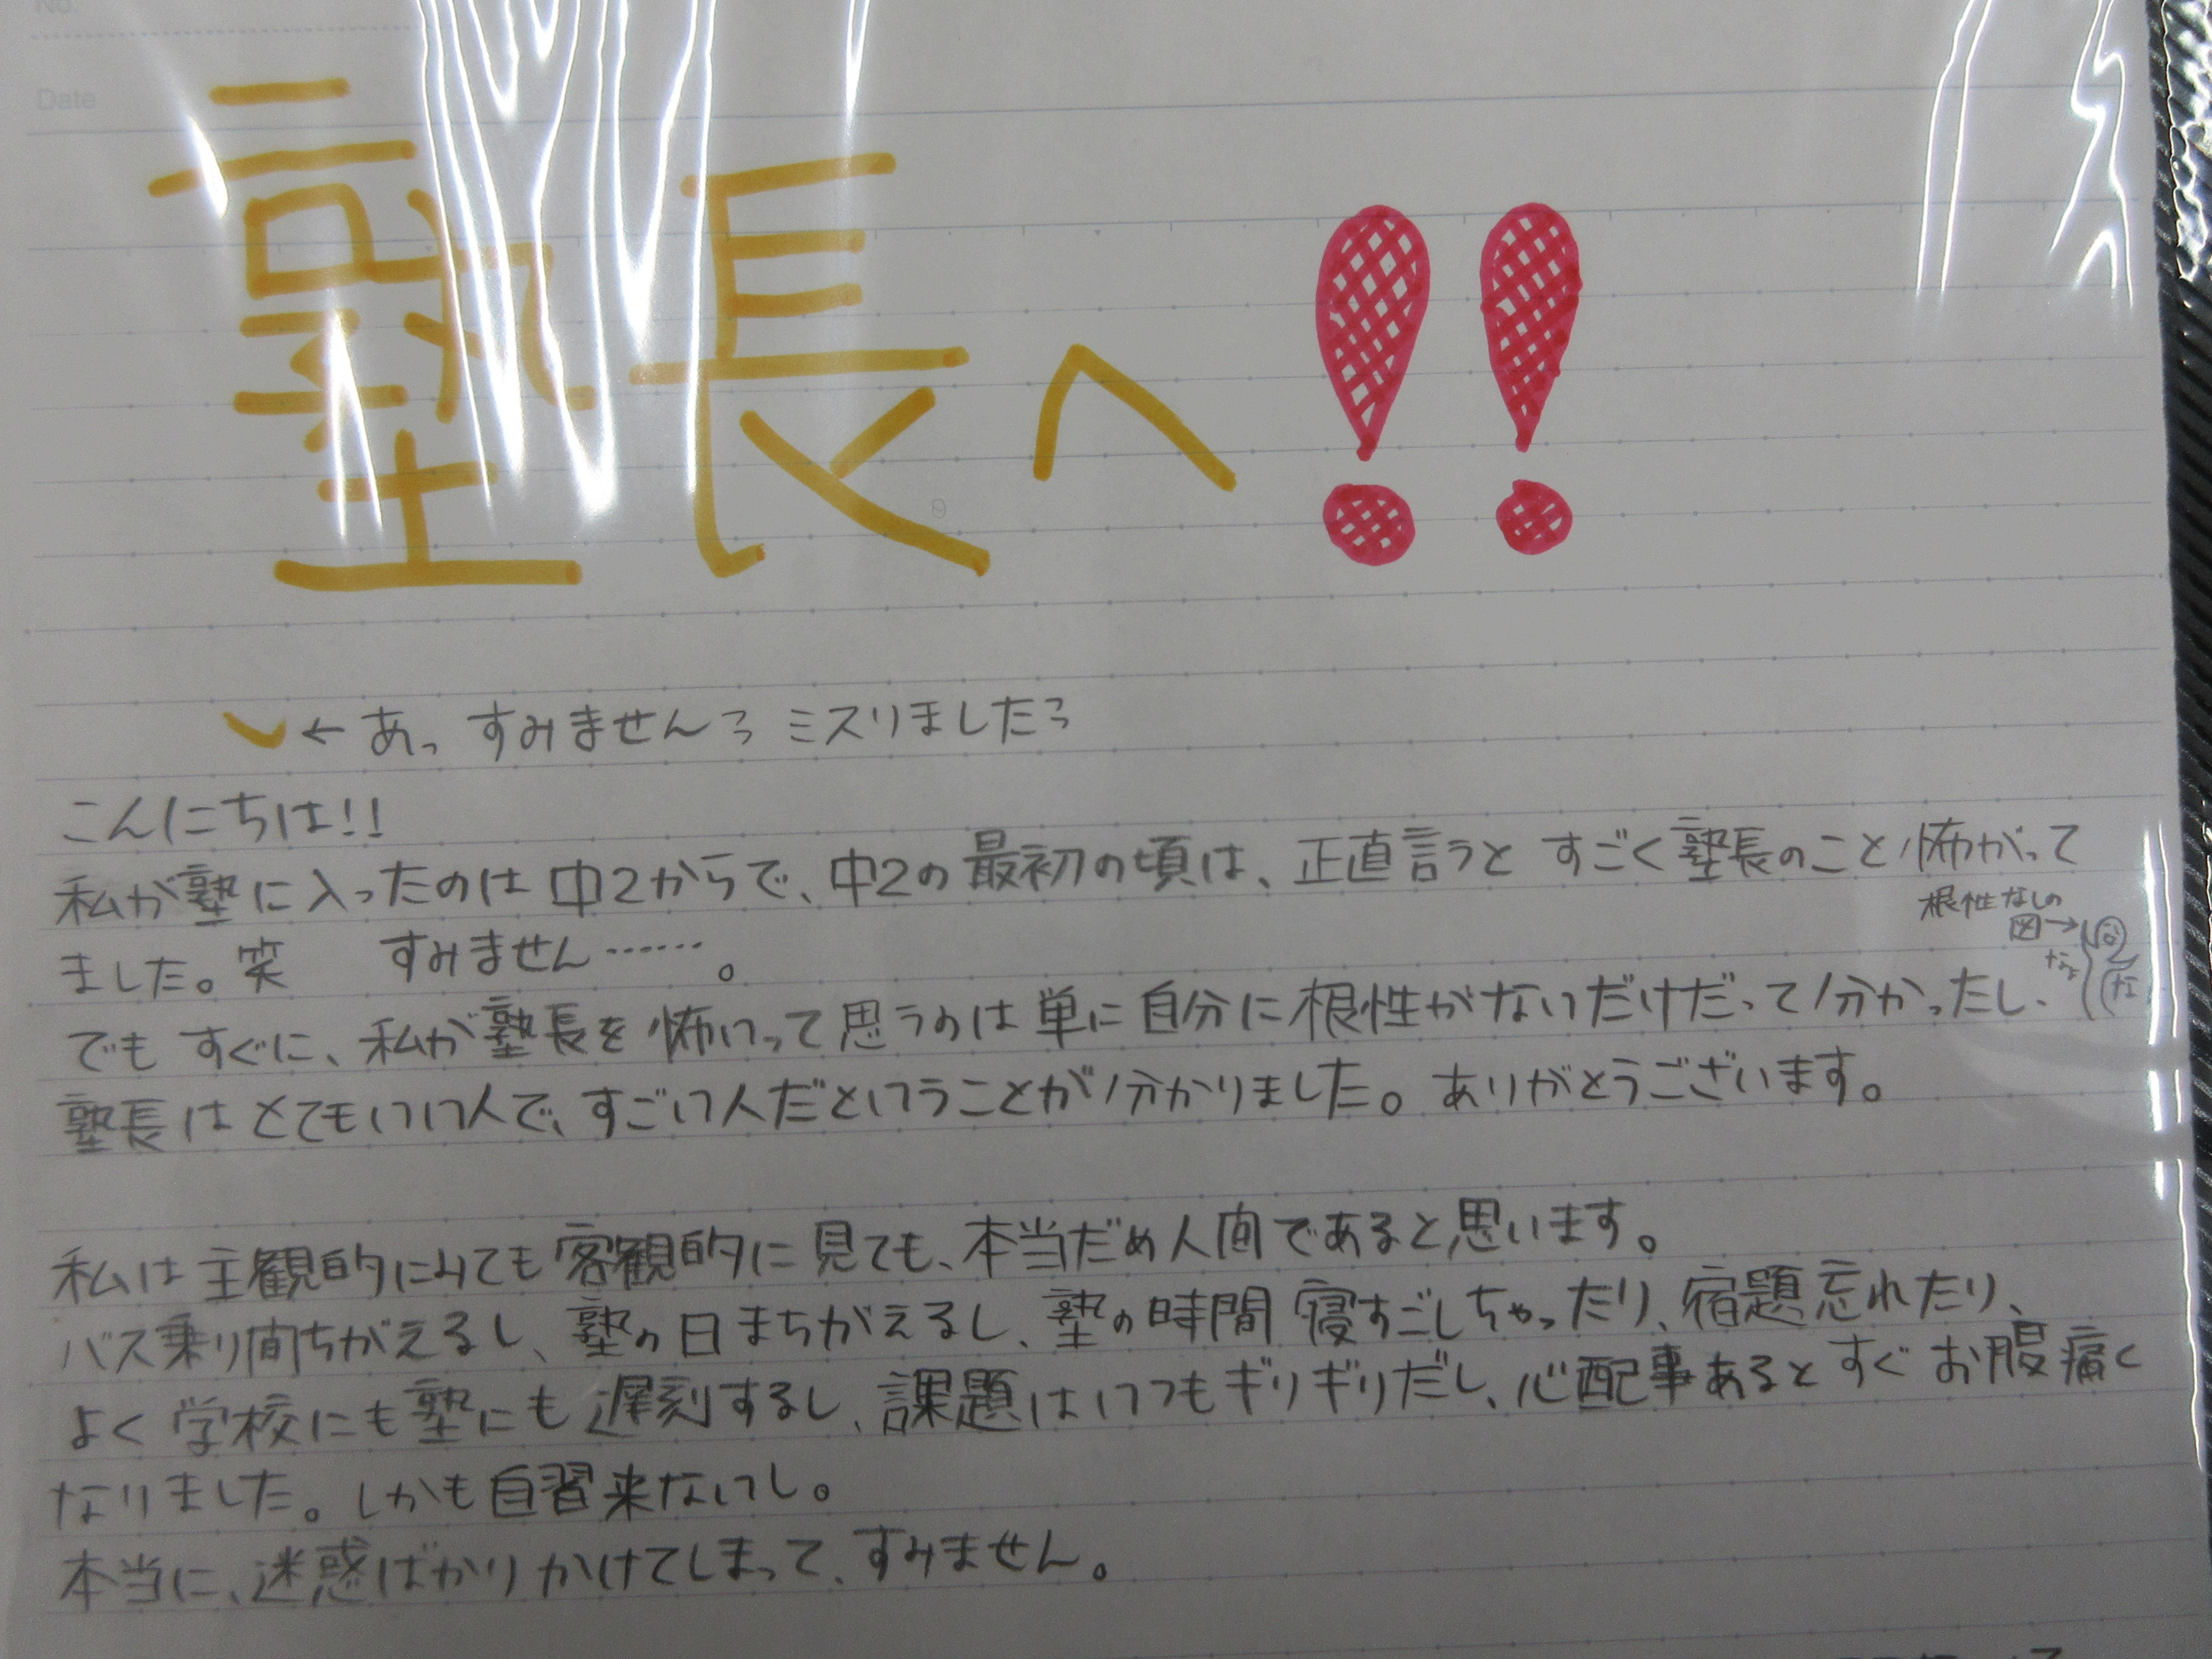 No.
Date
塾長へ!!
← あっ すみませんっ ミスりましたっ
こんにちは!!
私が塾に入ったのは中2からで、中2の最初の頃は、正直言うと すごく塾長のこと怖がって
ました。笑 すみません……。
根性なしの
図→
でも すぐに、私が塾長を怖いって思うのは単に自分に根性がないだけだって分かったし、
塾長はとてもいい人で、すごい人だということが分かりました。ありがとうございます。
私は主観的にみても客観的に見ても、本当だめ人間であると思います。
バス乗り間ちがえるし、塾の日まちがえるし、塾の時間寝すごしちゃったり、宿題忘れたり、
よく学校にも塾にも遅刻するし、課題はいつもギリギリだし、心配事あるとすぐお腹痛く
なりました。しかも自習来ないし。
本当に、迷惑ばかりかけてしまって、すみません。